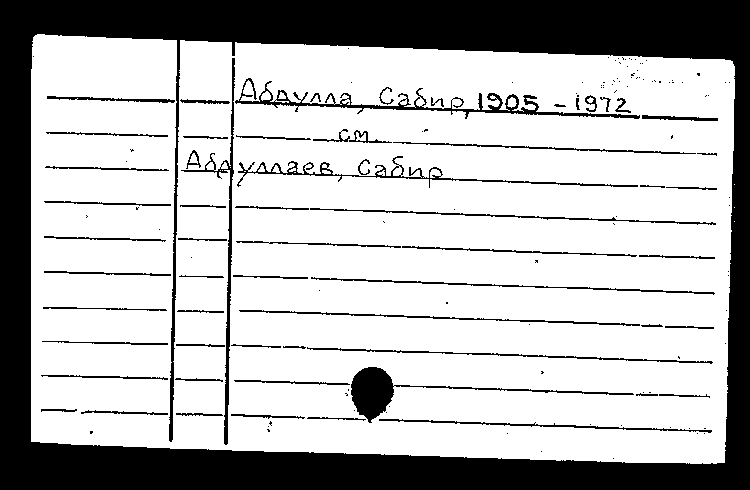 Абдулла, Сабир, 1905 - 1972
см.
Абдуллаев, Сабир